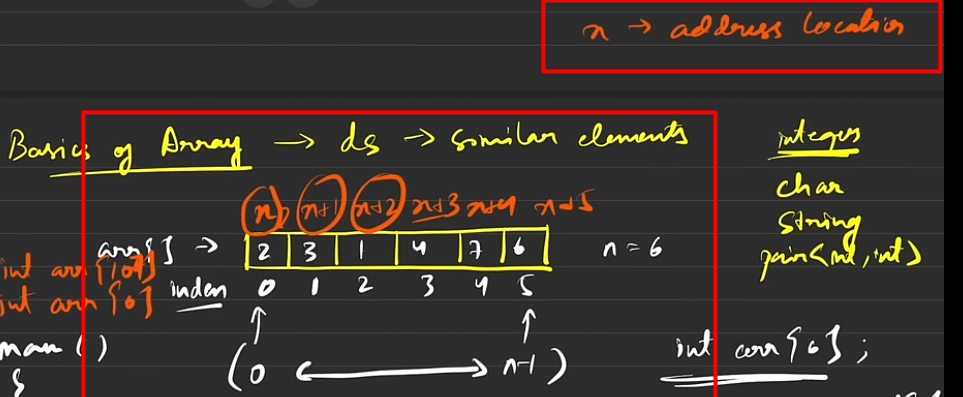 x → address location
Basics of Array → ds → similar elements
integers
char
String
pair<int, int>
x x+1 x+2 x+3 x+4 x+5
arr[] → 2 3 1 4 7 6 n = 6
index 0 1 2 3 4 5
int arr[10^7]
int arr[6]
main ()
{
(0 ↔ n-1)
int arr[6];